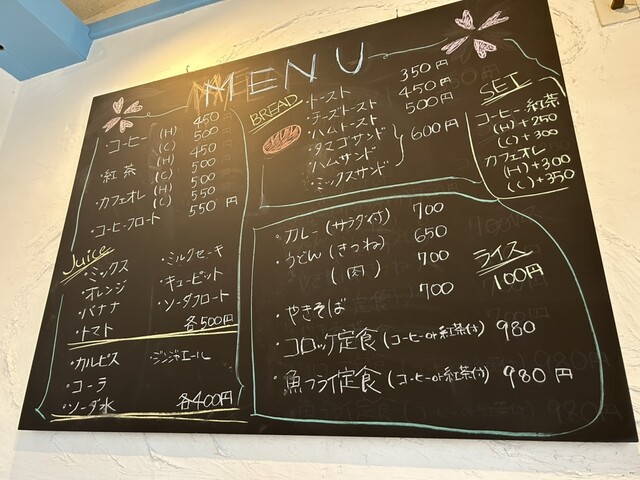 MENU
・コーヒー (H) 450
(C) 500
・紅茶 (H) 450
(C) 500
・カフェオレ (H) 500
(C) 550
・コーヒーフロート 550円
Juice
・ミックス ・ミルクセーキ
・オレンジ ・キューピット
・バナナ ・ソーダフロート
・トマト 各500円
・カルピス ・ジンジャエール
・コーラ
・ソーダ水 各400円
BREAD
・トースト 350円
・チーズトースト 450円
・ハムトースト 500円
・タマゴサンド
・ハムサンド 600円
・ミックスサンド
SET
コーヒー・紅茶
(H)+250
(C)+300
カフェオレ
(H)+300
(C)+350
・カレー(サラダ付) 700
・うどん(きつね) 650
(肉) 700
・やきそば 700
・コロッケ定食(コーヒーor紅茶付) 980
・魚フライ定食(コーヒーor紅茶付) 980円
ライス
100円